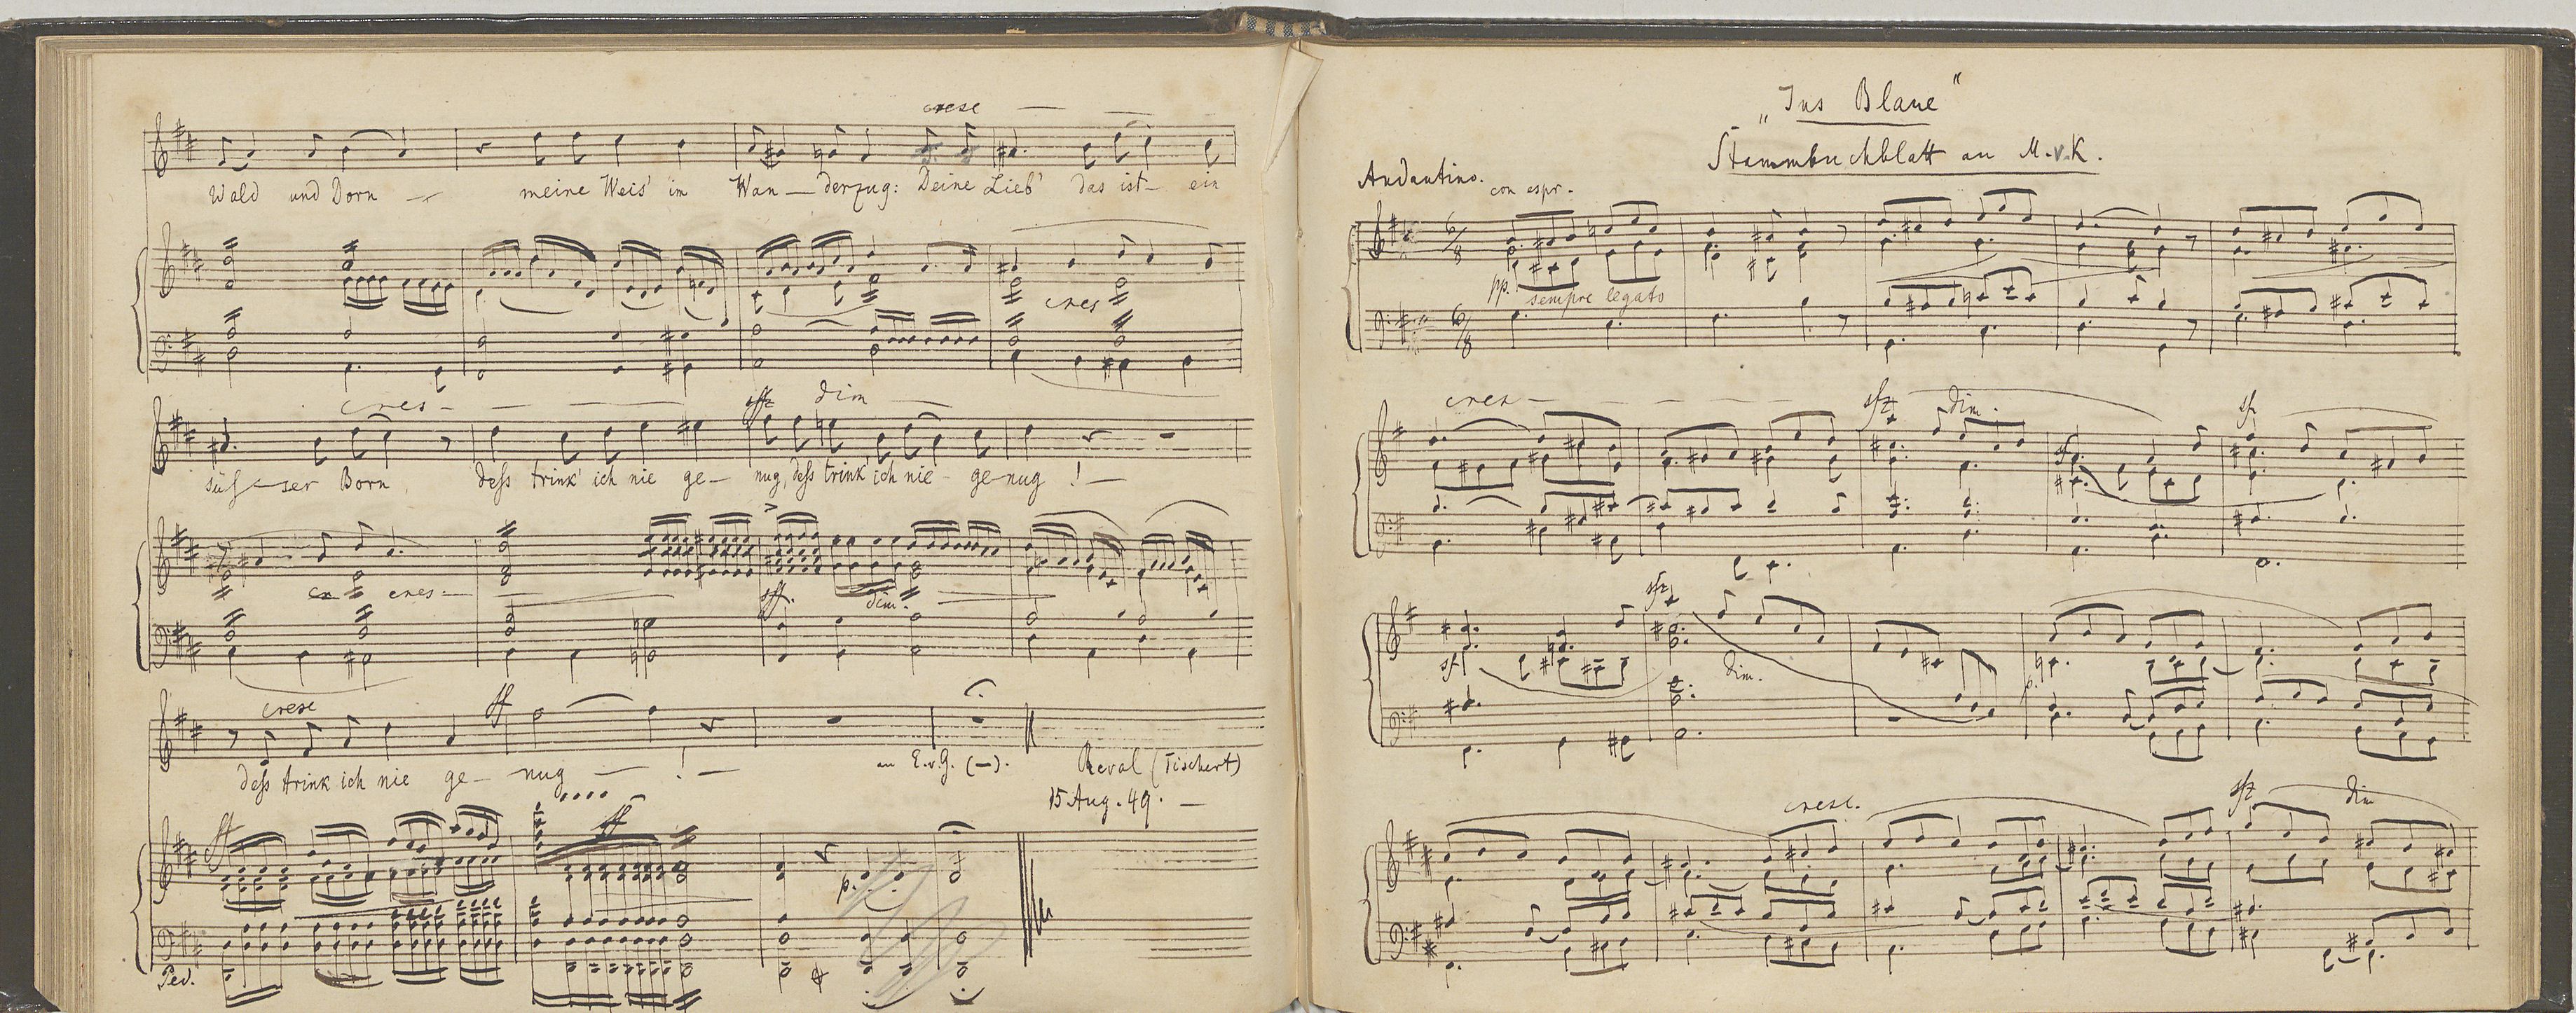 cresc
Wald und Dorn — meine Weis' im Wan — derzug: Deine Lieb' das ist — ein
cres
cres - dim
sffz
süsser Born, dess trink' ich nie ge — nug, dess trink' ich nie ge-nug! —
cres-
sff. dim.
cresc ff
dess trink ich nie ge — nug — ! —
an E.v.G. (—). Reval (Tischert)
15 Aug. 49. —
ff ff
p.
Ped.
„Ins Blaue"
Stammbuchblatt an M.v.K.
Andantino. con espr.
6/8
pp. sempre legato
6/8
cres - sfz dim. sf
sf
sfz
sf dim. p.
cresc. sfz dim